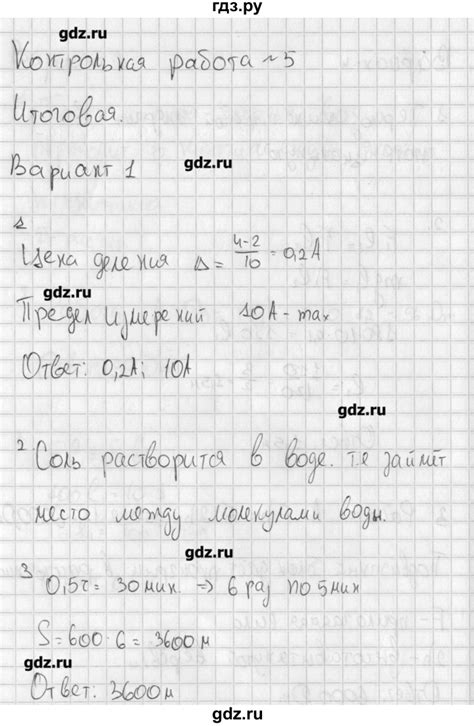 гдз.ру
gdz.ru
Контрольная работа ~5
Итоговая.
gdz.ru
Вариант 1
1
gdz.ru
Цена деления Δ = (4-2)/10 = 0,2А
gdz.ru
Предел измерений 10А - max
gdz.ru
Ответ: 0,2А; 10А
gdz.ru
gdz.ru
2 Соль растворится в воде. т.е займёт
место между молекулами воды.
gdz.ru
3
0,5ч = 30мин. => 6 раз по 5мин
gdz.ru
S = 600 · 6 = 3600м
gdz.ru
gdz.ru
Ответ: 3600м